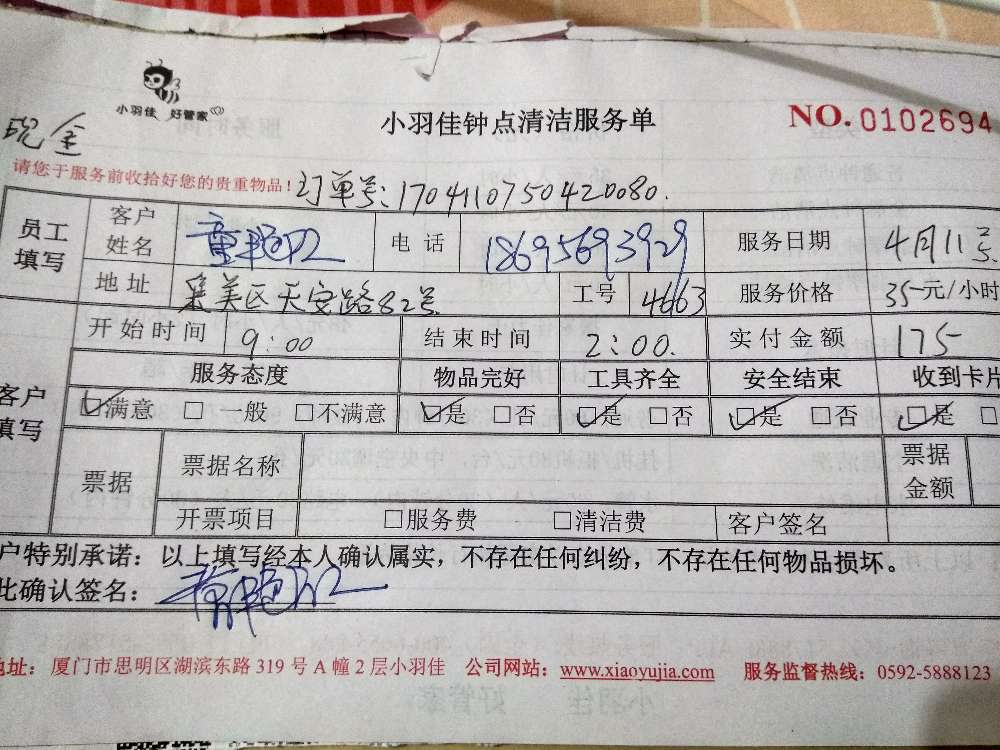 小羽佳 好管家
现金
小羽佳钟点清洁服务单
NO.0102694
请您于服务前收拾好您的贵重物品! 订单号:1704110750420080.
员工填写 客户姓名 电话 18695693929 服务日期 4月11号.
地址 集美区天安路82号 工号 4663 服务价格 35元/小时
开始时间 9:00 结束时间 2:00. 实付金额 175
服务态度 物品完好 工具齐全 安全结束 收到卡片
客户填写 ☑满意 □一般 □不满意 ☑是 □否 ☑是 □否 ☑是 □否 ☑是 □
票据 票据名称 票据金额
开票项目 □服务费 □清洁费 客户签名
户特别承诺：以上填写经本人确认属实，不存在任何纠纷，不存在任何物品损坏。
此确认签名：
地址：厦门市思明区湖滨东路 319 号 A 幢 2 层小羽佳 公司网站：www.xiaoyujia.com 服务监督热线：0592-5888123